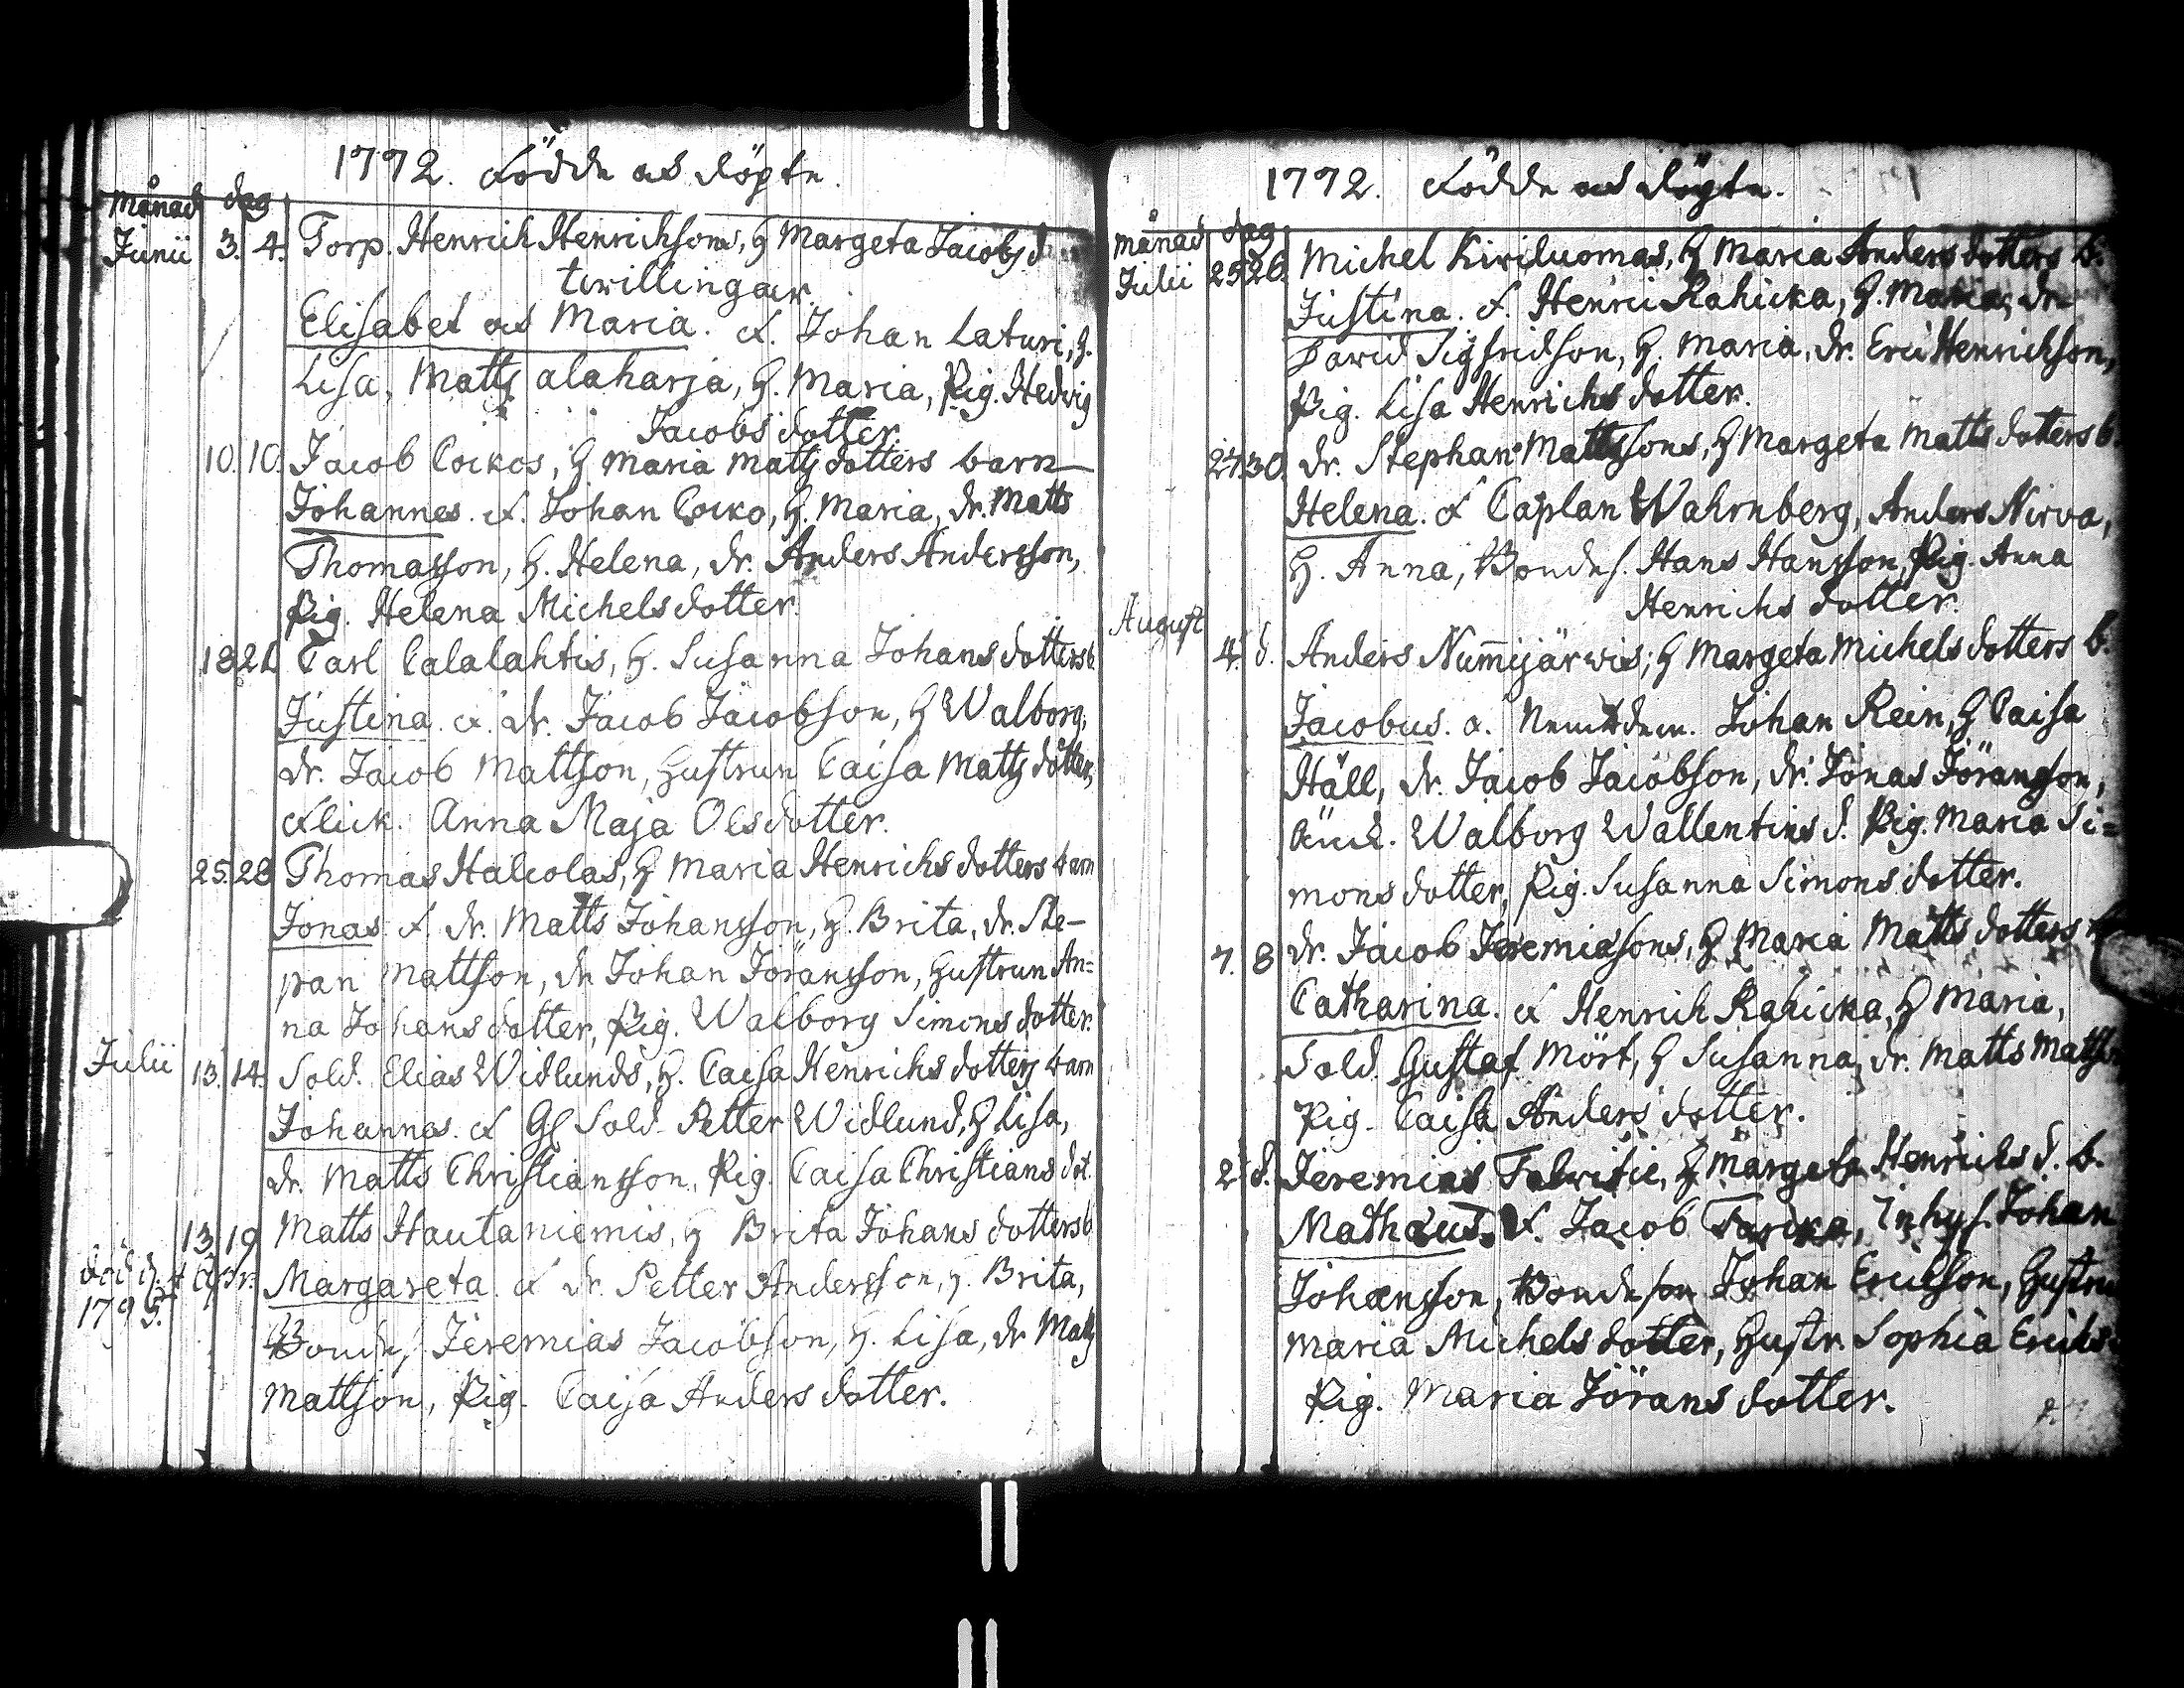 1772. Födde och döpte.
Månad dag
Junii 3. 4. Torp. Henrich Henrichsons, H Margeta Jacobsd
twillingar.
Elisabet och Maria. F. Johan Laturi, H.
Lisa, Matts alaharja, H. Maria, Pig. Hedvig
Jacobs dotter.
10. 10. Jacob Cockos, H Maria Matts dotters barn
Johannes. F. Johan Cocko, H. Maria, dr. Matts
Thomasson, H. Helena, dr. Anders Andersson,
Pig. Helena Michelsdotter.
18 21 Carl Calalahtis, H. Susanna Johansdotters b.
Justina. F. dr. Jacob Jacobson, H Walborg,
dr. Jacob Mattson, Hustrun Caisa Matts dotter,
Flick. Anna Maja Olsdotter.
25. 28 Thomas Halcolas, H Maria Henrichs dotters barn
Jonas. F. dr. Matts Johansson, H. Brita, dr. Ste-
pan Mattson, dr Johan Joransson, Hustrun An=
na Johansdotter, Pig. Walborg Simons dotter.
Julii 13. 14. Sold. Elias Widlunds, H. Caisa Henrichs dotters barn
Johannes. F Gl Sold. Petter Widlund, H Lisa,
dr. Matts Christiansson, Pig. Caisa Christians dot.
13 19 Matts Hautaniemis, H Brita Johans dotters b
död d. 4 Apr. Margareta. F dr. Petter Andersson, H. Brita,
1795.
Bondes. Jeremias Jacobson, H. Lisa, dr Matts
Mattson, Pig. Caisa Anders dotter.
1772. Födde och döpte.
Månad dag
Julii 25 26. Michel Kiviluomas, H Maria Anders dotters b.
Justina. F. Henric Rahicka, H. Maria, dr.
David Sigfridson, H. Maria, dr. Eric Henrichson,
Pig. Lisa Henrichs dotter.
27. 30. dr. Stephan Mattssons, H Margeta Matts dotters b.
Helena. F Caplan Wahrnberg, Anders Nirva,
H. Anna, Bondes. Hans Hansson, Pig. Anna
Henrichs dotter.
August
4. d. Anders Num̄ijärwis, H Margeta Michels dotters b.
Jacobus. F. Nemdem. Johan Rein, H Caisa
Häll, dr. Jacob Jacobson, dr. Jonas Jöransson,
Walborg Wallentins d. Pig. Maria Si=
mons dotter, Pig. Susanna Simons dotter.
7. 8 dr. Jacob Jeremiasons, H Maria Matts dotters
Catharina. F Henrich Rahicka, H Maria,
Sold. Gustaf Mört, H Susanna, dr. Matts Mattson
Pig. Caisa Anders dotter.
2 d. Jeremias H Margeta Henrichs d. b.
Mathæus. F. Jacob Inhys. Johan
Johansson, Bondeson Johan Ericsson, Hustru
Maria Michels dotter, Hustr. Sophia Erichs
Pig. Maria Jörans dotter.